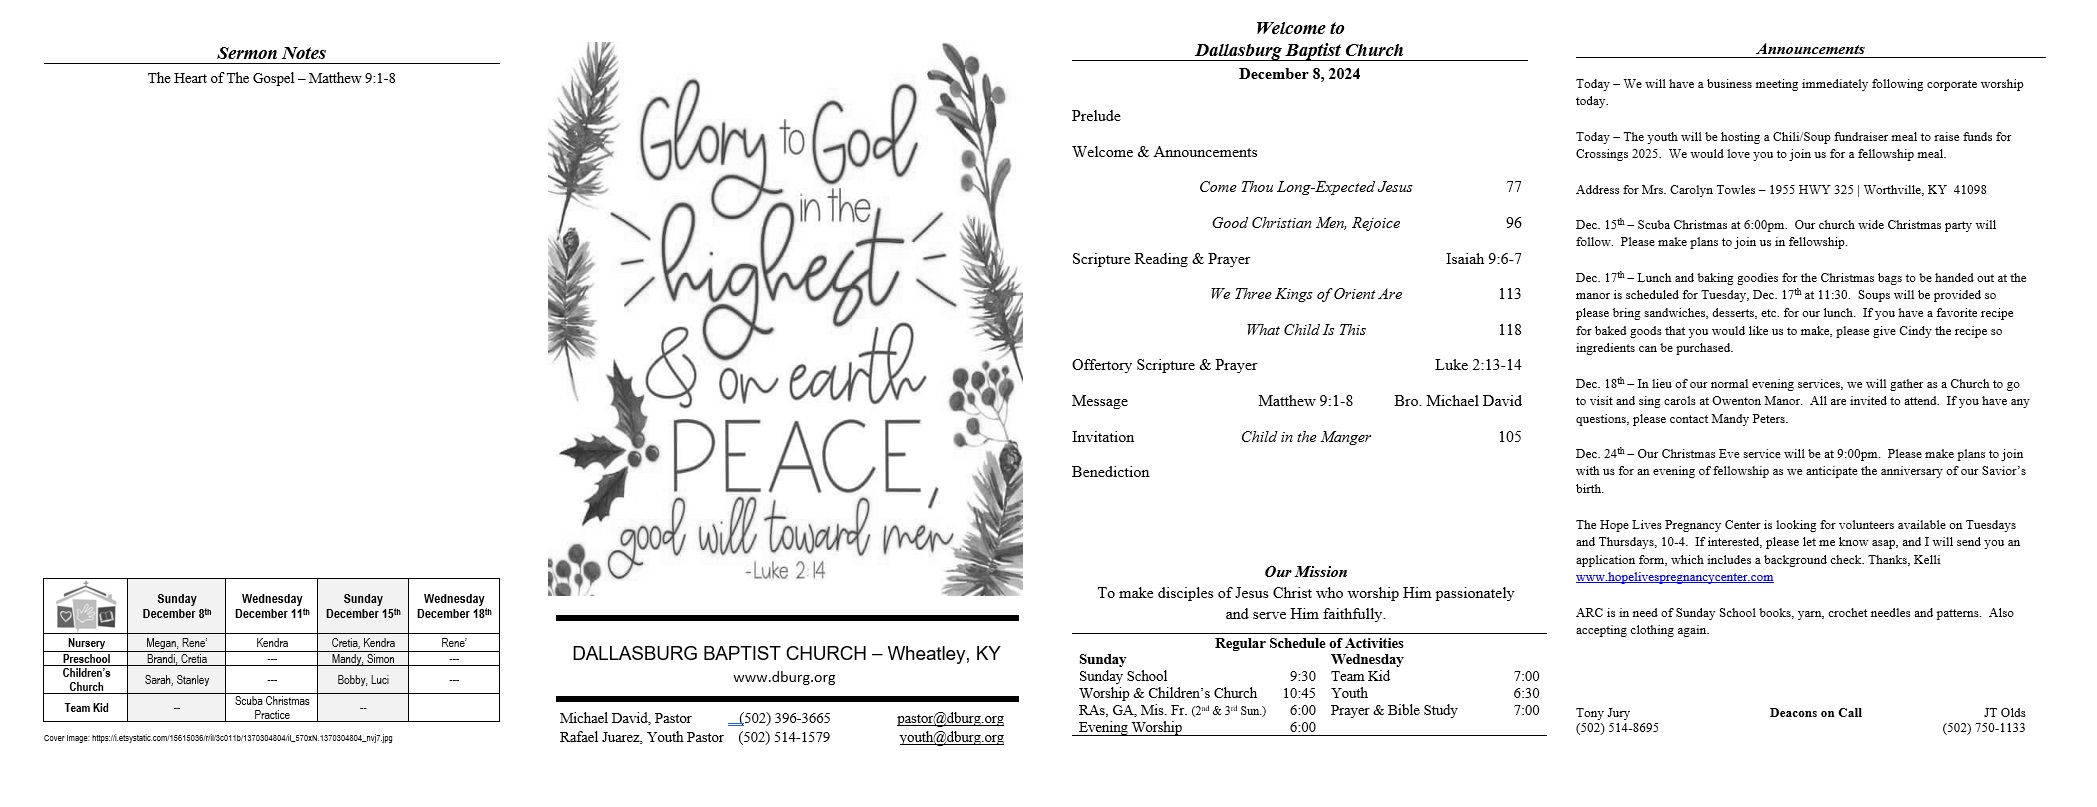 Sermon Notes
The Heart of The Gospel – Matthew 9:1-8
Sunday December 8th Wednesday December 11th Sunday December 15th Wednesday December 18th
Nursery Megan, Rene’ Kendra Cretia, Kendra Rene’
Preschool Brandi, Cretia --- Mandy, Simon ---
Children’s Church Sarah, Stanley --- Bobby, Luci ---
Team Kid -- Scuba Christmas Practice --
Cover Image: https://i.etsystatic.com/15615036/r/il/3c011b/1370304804/il_570xN.1370304804_nvj7.jpg
Glory to God
in the
highest
& on earth
PEACE,
good will toward men
-Luke 2:14
DALLASBURG BAPTIST CHURCH – Wheatley, KY
www.dburg.org
Michael David, Pastor (502) 396-3665 pastor@dburg.org
Rafael Juarez, Youth Pastor (502) 514-1579 youth@dburg.org
Welcome to
Dallasburg Baptist Church
December 8, 2024
Prelude
Welcome & Announcements
Come Thou Long-Expected Jesus 77
Good Christian Men, Rejoice 96
Scripture Reading & Prayer Isaiah 9:6-7
We Three Kings of Orient Are 113
What Child Is This 118
Offertory Scripture & Prayer Luke 2:13-14
Message Matthew 9:1-8 Bro. Michael David
Invitation Child in the Manger 105
Benediction
Our Mission
To make disciples of Jesus Christ who worship Him passionately
and serve Him faithfully.
Regular Schedule of Activities
Sunday Wednesday
Sunday School 9:30 Team Kid 7:00
Worship & Children’s Church 10:45 Youth 6:30
RAs, GA, Mis. Fr. (2nd & 3rd Sun.) 6:00 Prayer & Bible Study 7:00
Evening Worship 6:00
Announcements
Today – We will have a business meeting immediately following corporate worship
today.
Today – The youth will be hosting a Chili/Soup fundraiser meal to raise funds for
Crossings 2025. We would love you to join us for a fellowship meal.
Address for Mrs. Carolyn Towles – 1955 HWY 325 | Worthville, KY 41098
Dec. 15th – Scuba Christmas at 6:00pm. Our church wide Christmas party will
follow. Please make plans to join us in fellowship.
Dec. 17th – Lunch and baking goodies for the Christmas bags to be handed out at the
manor is scheduled for Tuesday, Dec. 17th at 11:30. Soups will be provided so
please bring sandwiches, desserts, etc. for our lunch. If you have a favorite recipe
for baked goods that you would like us to make, please give Cindy the recipe so
ingredients can be purchased.
Dec. 18th – In lieu of our normal evening services, we will gather as a Church to go
to visit and sing carols at Owenton Manor. All are invited to attend. If you have any
questions, please contact Mandy Peters.
Dec. 24th – Our Christmas Eve service will be at 9:00pm. Please make plans to join
with us for an evening of fellowship as we anticipate the anniversary of our Savior’s
birth.
The Hope Lives Pregnancy Center is looking for volunteers available on Tuesdays
and Thursdays, 10-4. If interested, please let me know asap, and I will send you an
application form, which includes a background check. Thanks, Kelli
www.hopelivespregnancycenter.com
ARC is in need of Sunday School books, yarn, crochet needles and patterns. Also
accepting clothing again.
Tony Jury Deacons on Call JT Olds
(502) 514-8695 (502) 750-1133